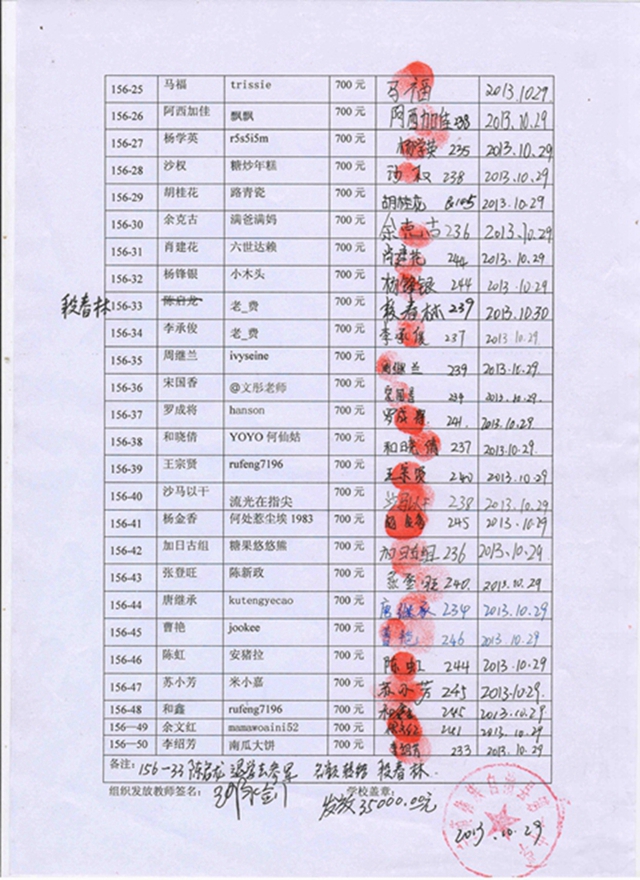 156-25 马福 trissie 700 元 马福 2013.10.29
156-26 阿西加佳 飘飘 700 元 阿西加佳 238 2013.10.29
156-27 杨学英 r5s5i5m 700 元 杨学英 235 2013.10.29
156-28 沙权 糖炒年糕 700 元 沙权 238 2013.10.29
156-29 胡桂花 路青瓷 700 元 胡桂花 2013.10.29
156-30 余克古 满爸满妈 700 元 余克古 236 2013.10.29
156-31 肖建花 六世达赖 700 元 肖建花 244 2013.10.29
156-32 杨锋银 小木头 700 元 杨锋银 244 2013.10.29
段春林 156-33 陈启龙 老_费 700 元 段春林 239 2013.10.30
156-34 李承俊 老_费 700 元 李承俊 237 2013.10.29
156-35 周继兰 ivyseine 700 元 周继兰 239 2013.10.29
156-36 宋国香 @文彤老师 700 元 2013.10.29
156-37 罗成将 hanson 700 元 罗成将 241 2013.10.29
156-38 和晓倩 YOYO 何仙姑 700 元 和晓倩 237 2013.10.29
156-39 王宗贤 rufeng7196 700 元 240 2013.10.29
156-40 沙马以干 流光在指尖 700 元 238 2013.10.29
156-41 杨金香 何处惹尘埃 1983 700 元 245 2013.10.29
156-42 加日古组 糖果悠悠熊 700 元 加日古组 236 2013.10.29
156-43 张登旺 陈新政 700 元 张登旺 240 2013.10.29
156-44 唐继承 kutengyecao 700 元 唐继承 234 2013.10.29
156-45 曹艳 jookee 700 元 曹艳 246 2013.10.29
156-46 陈虹 安猪拉 700 元 陈虹 244 2013.10.29
156-47 苏小芳 米小嘉 700 元 苏小芳 245 2013.10.29
156-48 和鑫 rufeng7196 700 元 和鑫 245 2013.10.29
156—49 余文红 mamawoaini52 700 元 241 2013.10.29
156—50 李绍芳 南瓜大饼 700 元 李绍芳 233 2013.10.29
备注： 156-33 陈启龙 退学去参军 名额转给 段春林.
组织发放教师签名： 学校盖章：
发放35000.00元
2013.10.29